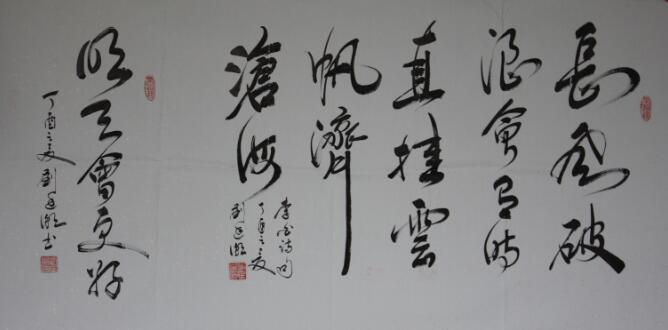 長風破
浪會有時
直挂雲
帆濟
滄海
李白詩句
丁酉之夏
劉
明天會更好
丁酉之夏劉書